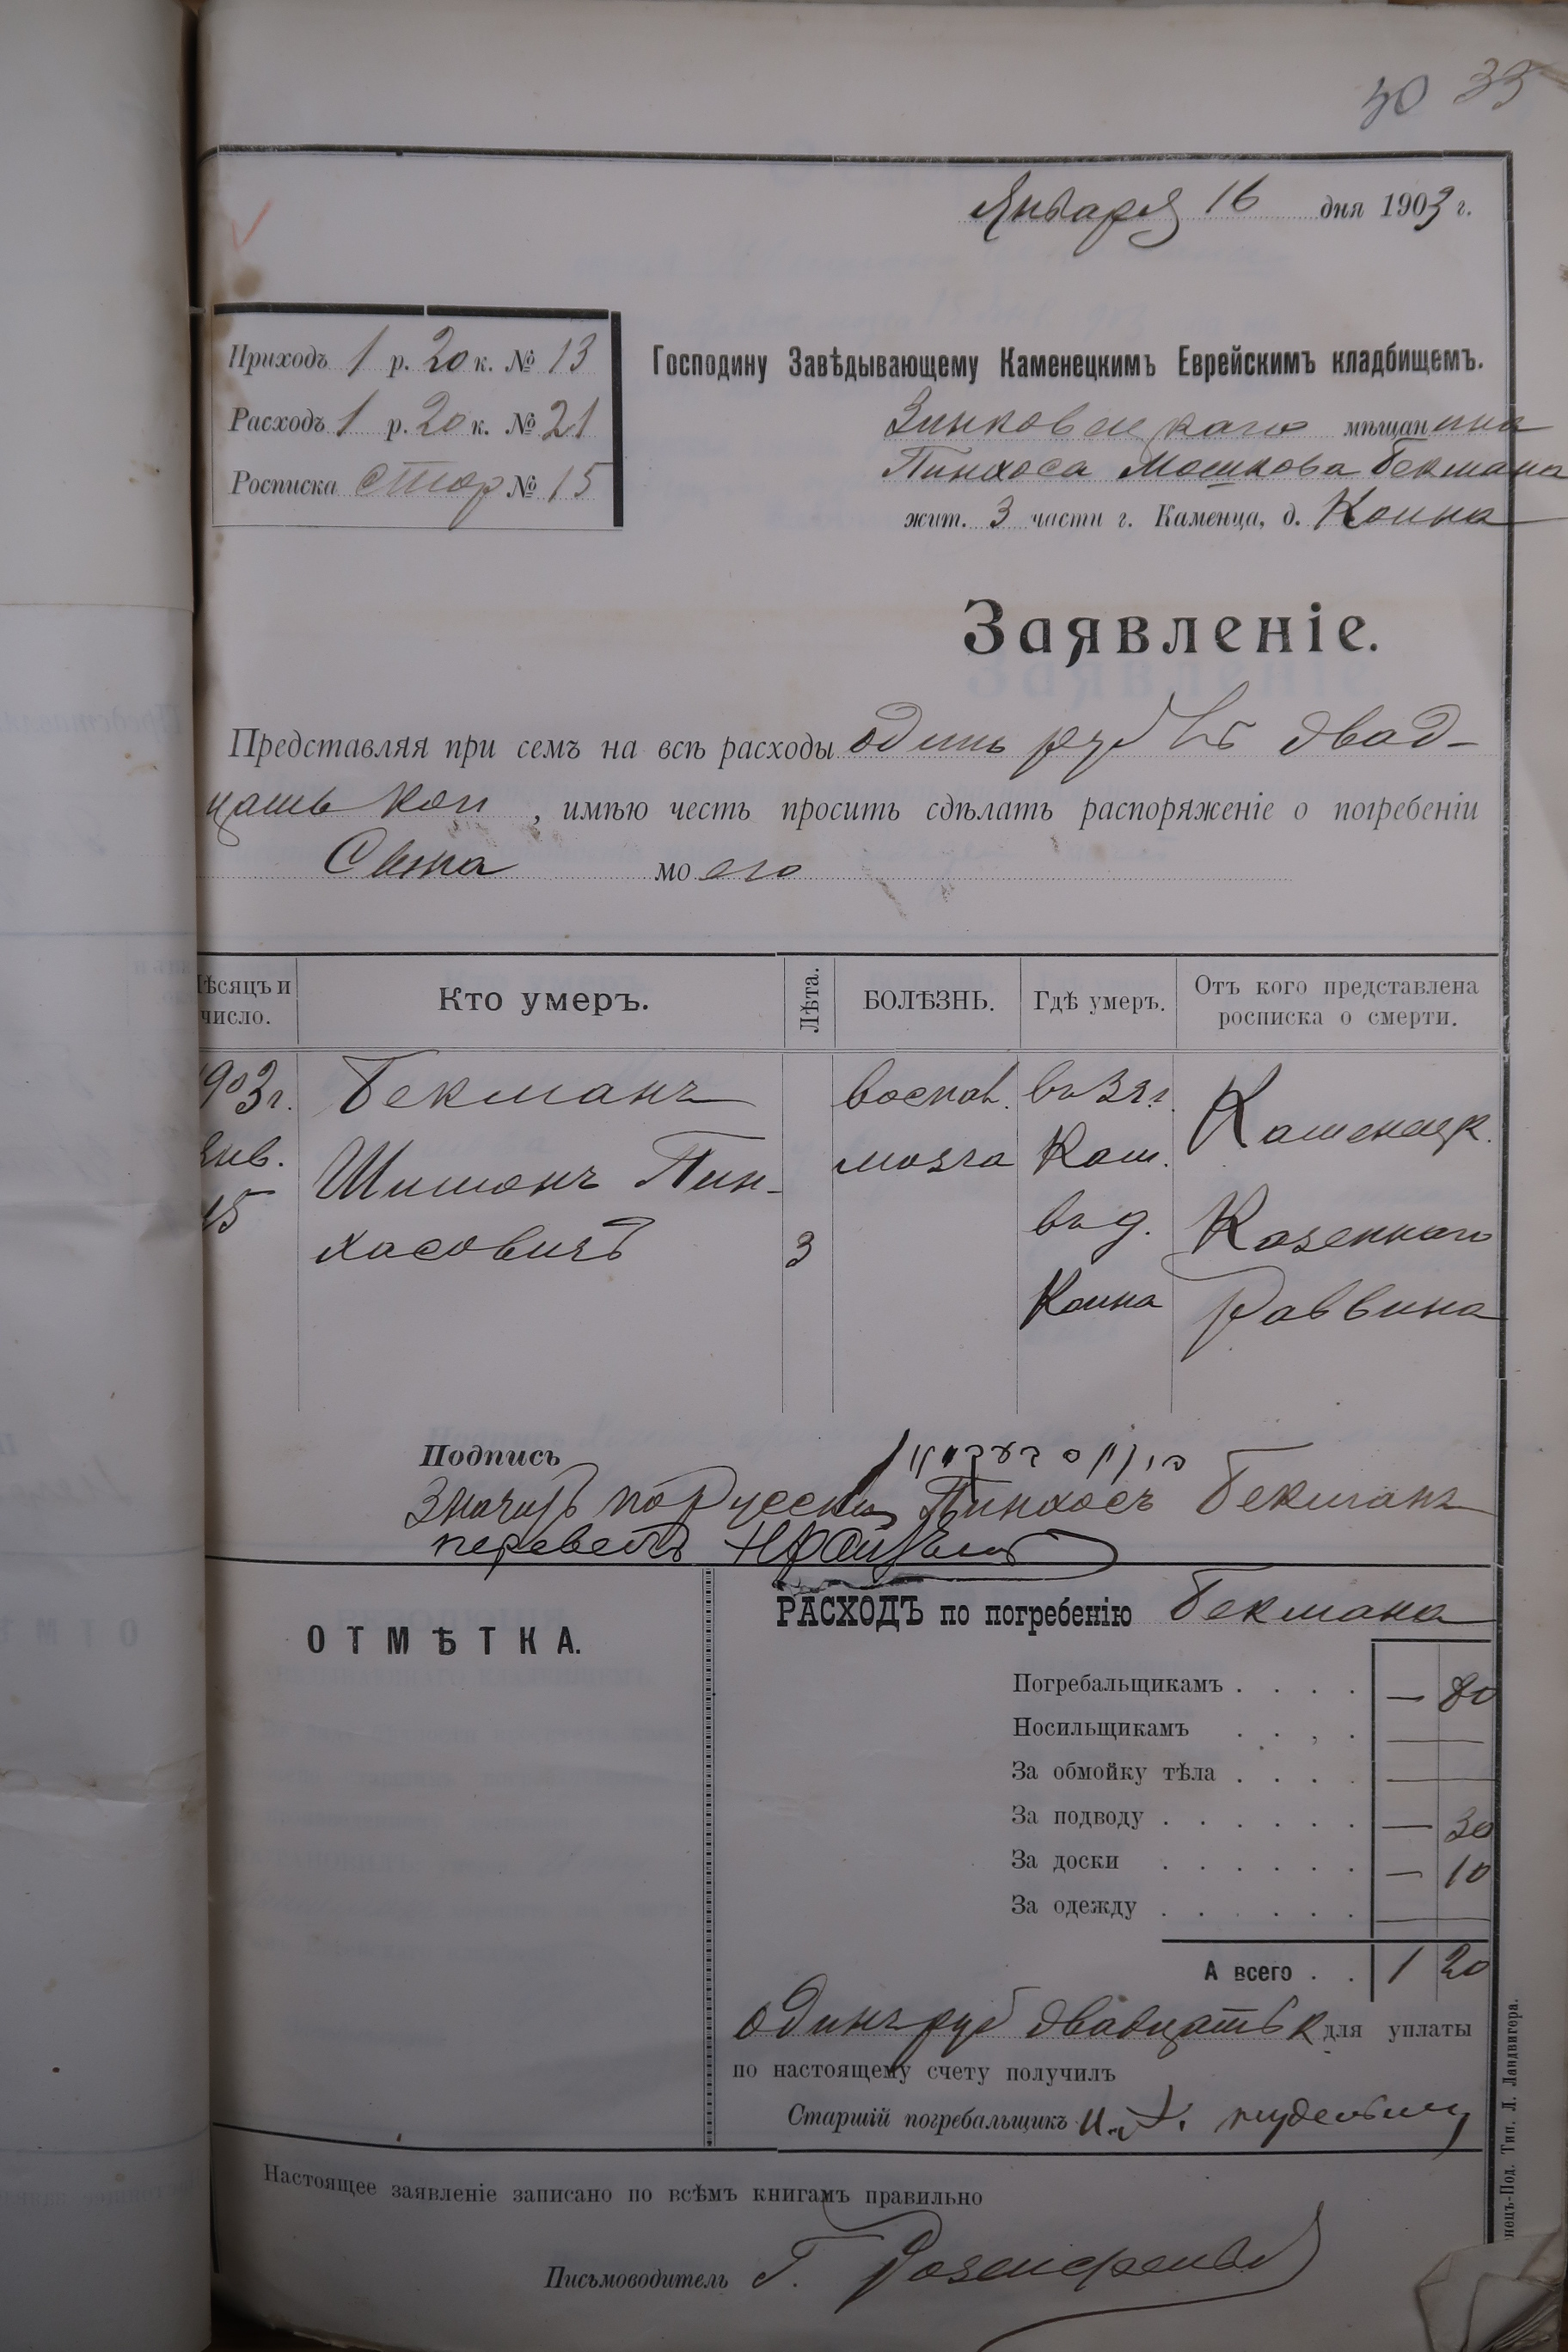 40 35
Января 16 дня 1903 г.
Приходъ 1 р. 20 к. № 13
Расходъ 1 р. 20 к. № 21
Росписка стор № 15
Господину Завѣдывающему Каменецкимъ Еврейскимъ кладбищемъ.
Зинковецкаго мѣщанина
Пинхоса Мошкова Бекмана
жит. 3 части г. Каменца, д. Коина
Заявленіе.
Представляя при семъ на всѣ расходы одинъ руб двад-
цать коп, имѣю честь просить сдѣлать распоряженіе о погребеніи
Сына моего
Мѣсяцъ и число. Кто умеръ. Лѣта. БОЛѢЗНЬ. Гдѣ умеръ. Отъ кого представлена росписка о смерти.
1903г. Бекманъ воспал. въ 3 ч. Каменецк.
Янв. Шимонъ Пин- мозга Кам.
15 хасовичъ 3 въ д. Казеннаго
Коина Раввина
Подпись
פינחס בעקמאן
Значитъ по русски Пинхосъ Бекманъ
перевелъ
ОТМѢТКА.
РАСХОДЪ по погребенію Бекмана
Погребальщикамъ . . . . — 80
Носильщикамъ . . . .
За обмойку тѣла . . . .
За подводу . . . . . . — 30
За доски . . . . . . — 10
За одежду . . . . . .
А всего . . 1 20
одинъ руб двадцать к для уплаты
по настоящему счету получилъ
Старшій погребальщикъ
Настоящее заявленіе записано по всѣмъ книгамъ правильно
Письмоводитель Г. Розенфельд
нецъ-Под. Тип. Л. Ландвигера.